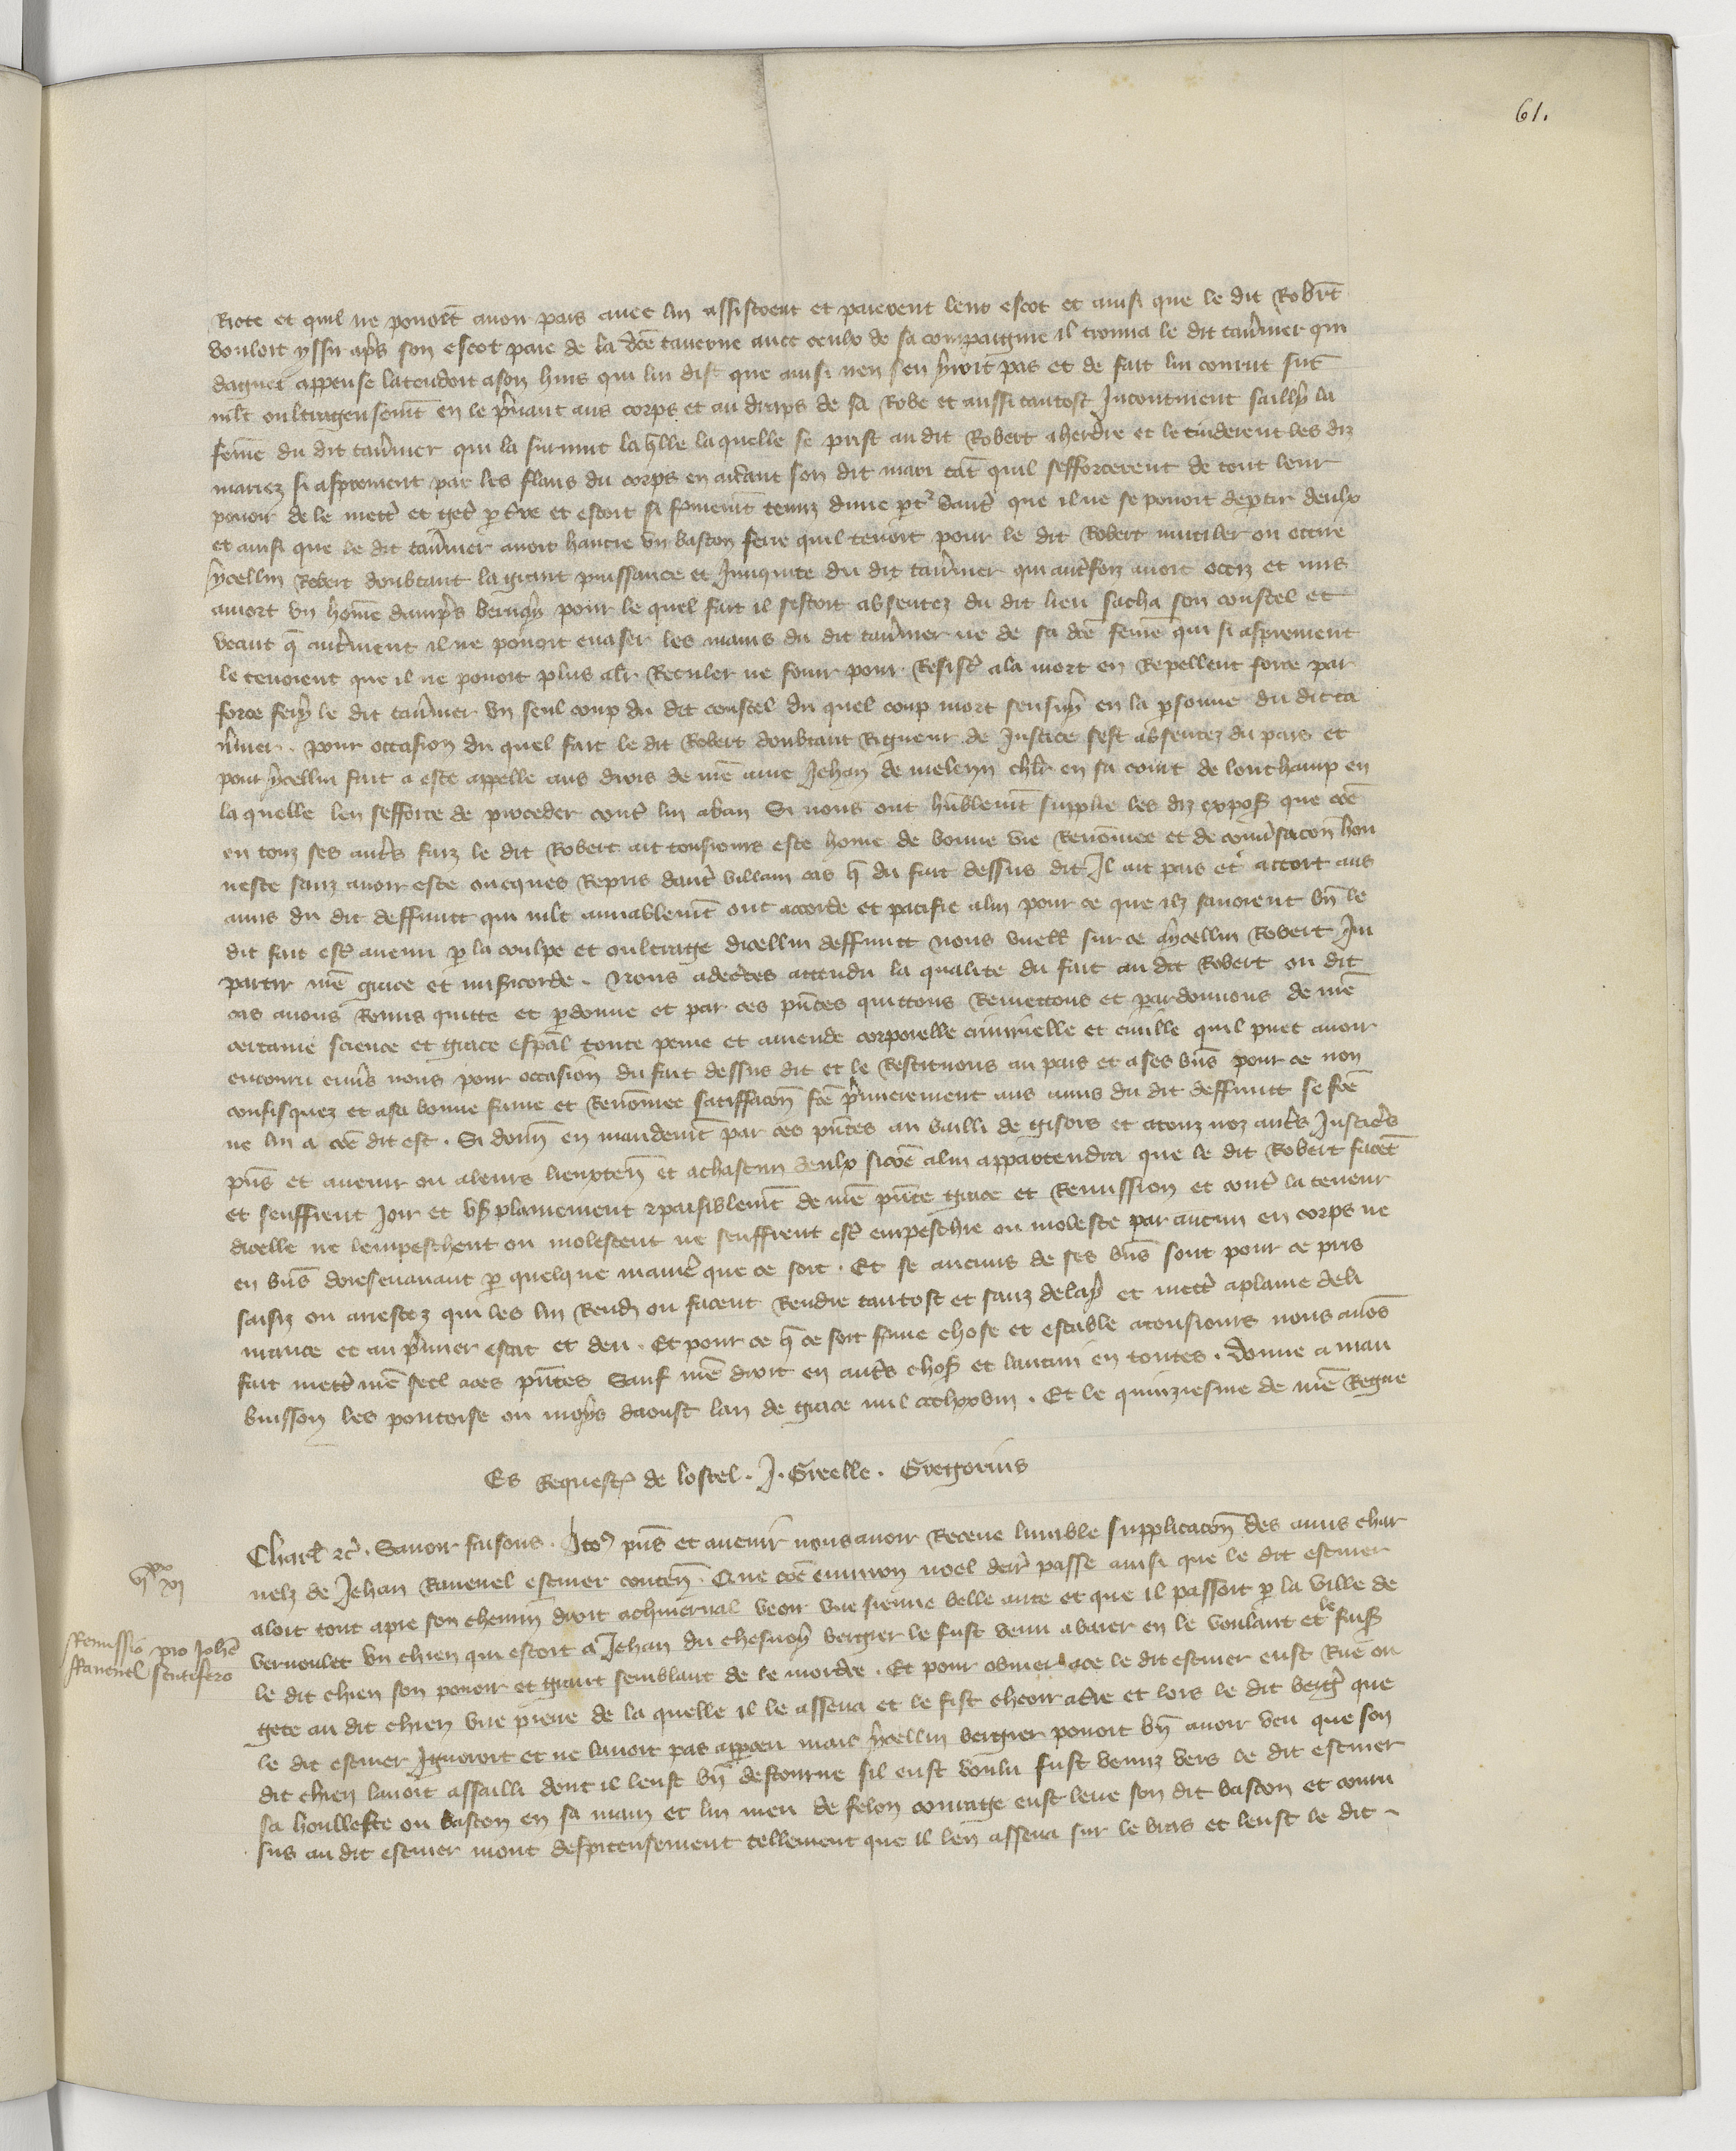 61.
Riote et quil ne povoit avoir pais avec lui assistrent et paierent leur escot et ainsi que le dit Robert
vouloit yssir apres son escot paie de la dce taverne avec ceulx de sa compaignie il trouva le dit tavnier qui
daguet appense latendoit a son huis qui lui dist que ainsi nen sen yroit pas et de fait lui courut sur
mlt oultrageusemt en le prenant aus corps et au draps de sa Robe et aussi tantost Incontinent sailly la
feme du dit tavnier qui la survint la quelle se prist au dit Robert aherdre et le tindrent les diz
mariez si asprement par les flans du corps en aidant son dit mari tant quil sefforcerent de tout leur
povoir de le mettre et geter p terre et estoit si fermemt tenuz dune part dautre que il ne se povoit deptir deulx
et ainsi que le dit tavnier avoit haucie un baston ferre quil tenoit pour le dit Robert mutiler ou occire
ycellui Robert doubtant la grant puissance et Iniquite du dit tavnier qui autrefoiz avoit occiz et mis
a mort un home dempres pour le quel fait il sestoit absentez du dit lieu sacha son coustel et
veant q autrement il ne povoit evader les mains du dit tavnier ne de sa dce feme qui si asprement
le tenoient que il ne povoit plus aler Reculer ne fouir pour Resister a la mort en Repellent force par
force fery le dit tavnier un seul coup du dit coustel du quel coup mort sensuy en la psonne du dit ta
vnier . pour occasion du quel fait le dit Robert doubtant Rigueur de Justice sest absentez du pais et
pour ycellui fait a este appelle aus drois de nre ame Jehan de meleun chlr en sa court de lonchamp en
la quelle len sefforce de proceder contre lui a ban Si nous ont humblemt supplie les diz expos que coe
en touz ses autres faiz le dit Robert ait tousiours este home de bonne vie Renommee et de conversacon hon
neste sanz avoir este oncques Repris dautre villain cas q du fait dessus dit Il ait pais et accort aus
amis du dit deffunct qui mlt amiablemt ont accorde et pacifie a lui pour ce que ilz savoient bn le
dit fait estre avenu p la coulpe et oultrage dicellui deffunct nous vueill sur ce a ycellui Robert Im
partir nre grace et misicorde . Nous adecertes attendu la qualite du fait au dit Robert ou dit
cas avons Remis quitte et pdonne et par ces pntes quittons Remettons et pardonnons de nre
certaine science et grace espal toute peine et amende corporelle criminelle et civille quil puet avoir
encouru envers nous pour occasion du fait dessus dit et le Restituons au pais et a ses biens pour ce non
confisquez et a sa bonne fame et Renommee satiffacon fce premierement aus amis du dit deffunct se fce
ne lui a coe dit est . Si donn en mandemt par ces pntes au bailli de gisors et a touz noz autres Justiciers
pns et avenir ou a leurs lieuxten et a chascun deulx sicoe a lui appartendra que le dit Robert facent
et seuffrent Joir et user plainement et paisiblemt de nre pnte grace et Remission et contre la teneur
dicelle ne lempeschent ou molestent ne seuffrent estre empeschie ou moleste par aucun en corps ne
en biens doresenavant p quelque maniere que ce soit . Et se aucuns de ses biens sont pour ce pris
saisiz ou arrestez qui les lui Rend ou facent Rendre tantost et sanz delay et mettre a plaine deli
vrance et au premier estat et deu . Et pour ce q ce soit ferme chose et estable a tousiours nous avons
fait mettre nre seel a ces pntes Sauf nre droit en autres choses et lautrui en toutes . Donne a mau
buisson les pontoise ou moys daoust lan de grace mil ccclxxviii . Et le quinziesme de nre Regne
Es Requestes de lostel . J . Greelle . Gregorius
vixx xi
Remissio pro Johe
Ravenel scutifero
Charl etc . Savoir faisons . A tous pns et avenir nous avoir Receue lumble supplicacon des amis char
nelz de Jehan Ravenel escuier conten . Que coe environ noel derr passe ainsi que le dit escuier
aloit tout a pie son chemin droit a chmerval veoir une sienne belle ante et que il passoit p la ville de
vernoulet un chien qui estoit a Jehan du chesnoy bergier le fust venu abaier en le voulant et le fais
le dit chien son povoir et grant semblant de le mordre . Et pour obvier a ce le dit escuier eust Rue ou
gete au dit chien une pierre de la quelle il le assena et le fist cheoir a terre et lors le dit bergier que
le dit escuier Ignoroit et ne lavoit pas apperceu mais ycellui bergier povoit bn avoir veu que son
dit chien lavoit assailli dont il leust bn destourne sil eust voulu fust venuz vers le dit escuier
sa houllecte ou baston en sa main et lui meu de felon courage eust leve son dit baston et couru
sus au dit escuier mout despiteusement tellement que il len assena sur le bras et leust le dit